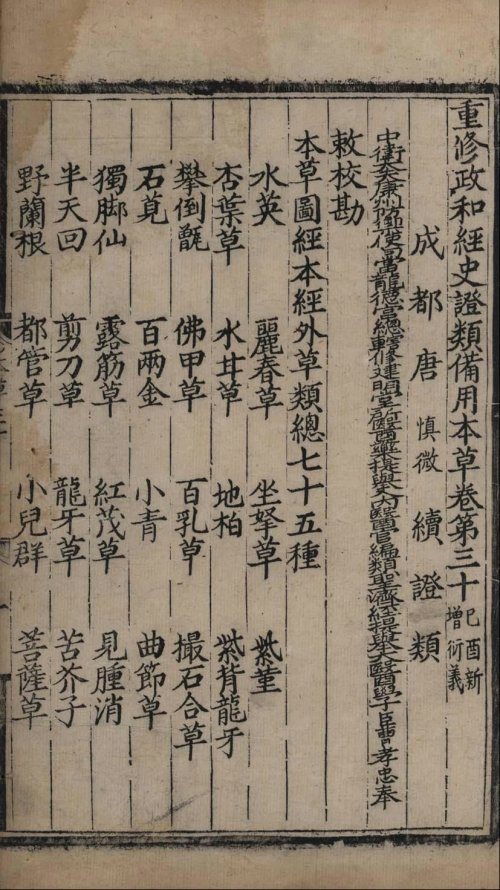 重修政和經史證類備用本草卷第三十 己酉新增衍義
成都唐慎微續證類
中衛大夫康州防禦使句當龍德宮總轄修建明堂所醫藥提舉入內醫官編類聖濟經提舉太醫學臣曹孝忠奉
敕校勘
本草圖經本經外草類總七十五種
水英 麗春草 坐拏草 紫堇
杏葉草 水甘草 地柏 紫背龍牙
攀倒甑 佛甲草 百乳草 撮石合草
石莧 百兩金 小青 曲節草
獨脚仙 露筋草 紅茂草 見腫消
半天回 剪刀草 龍牙草 苦芥子
野蘭根 都管草 小兒群 菩薩草